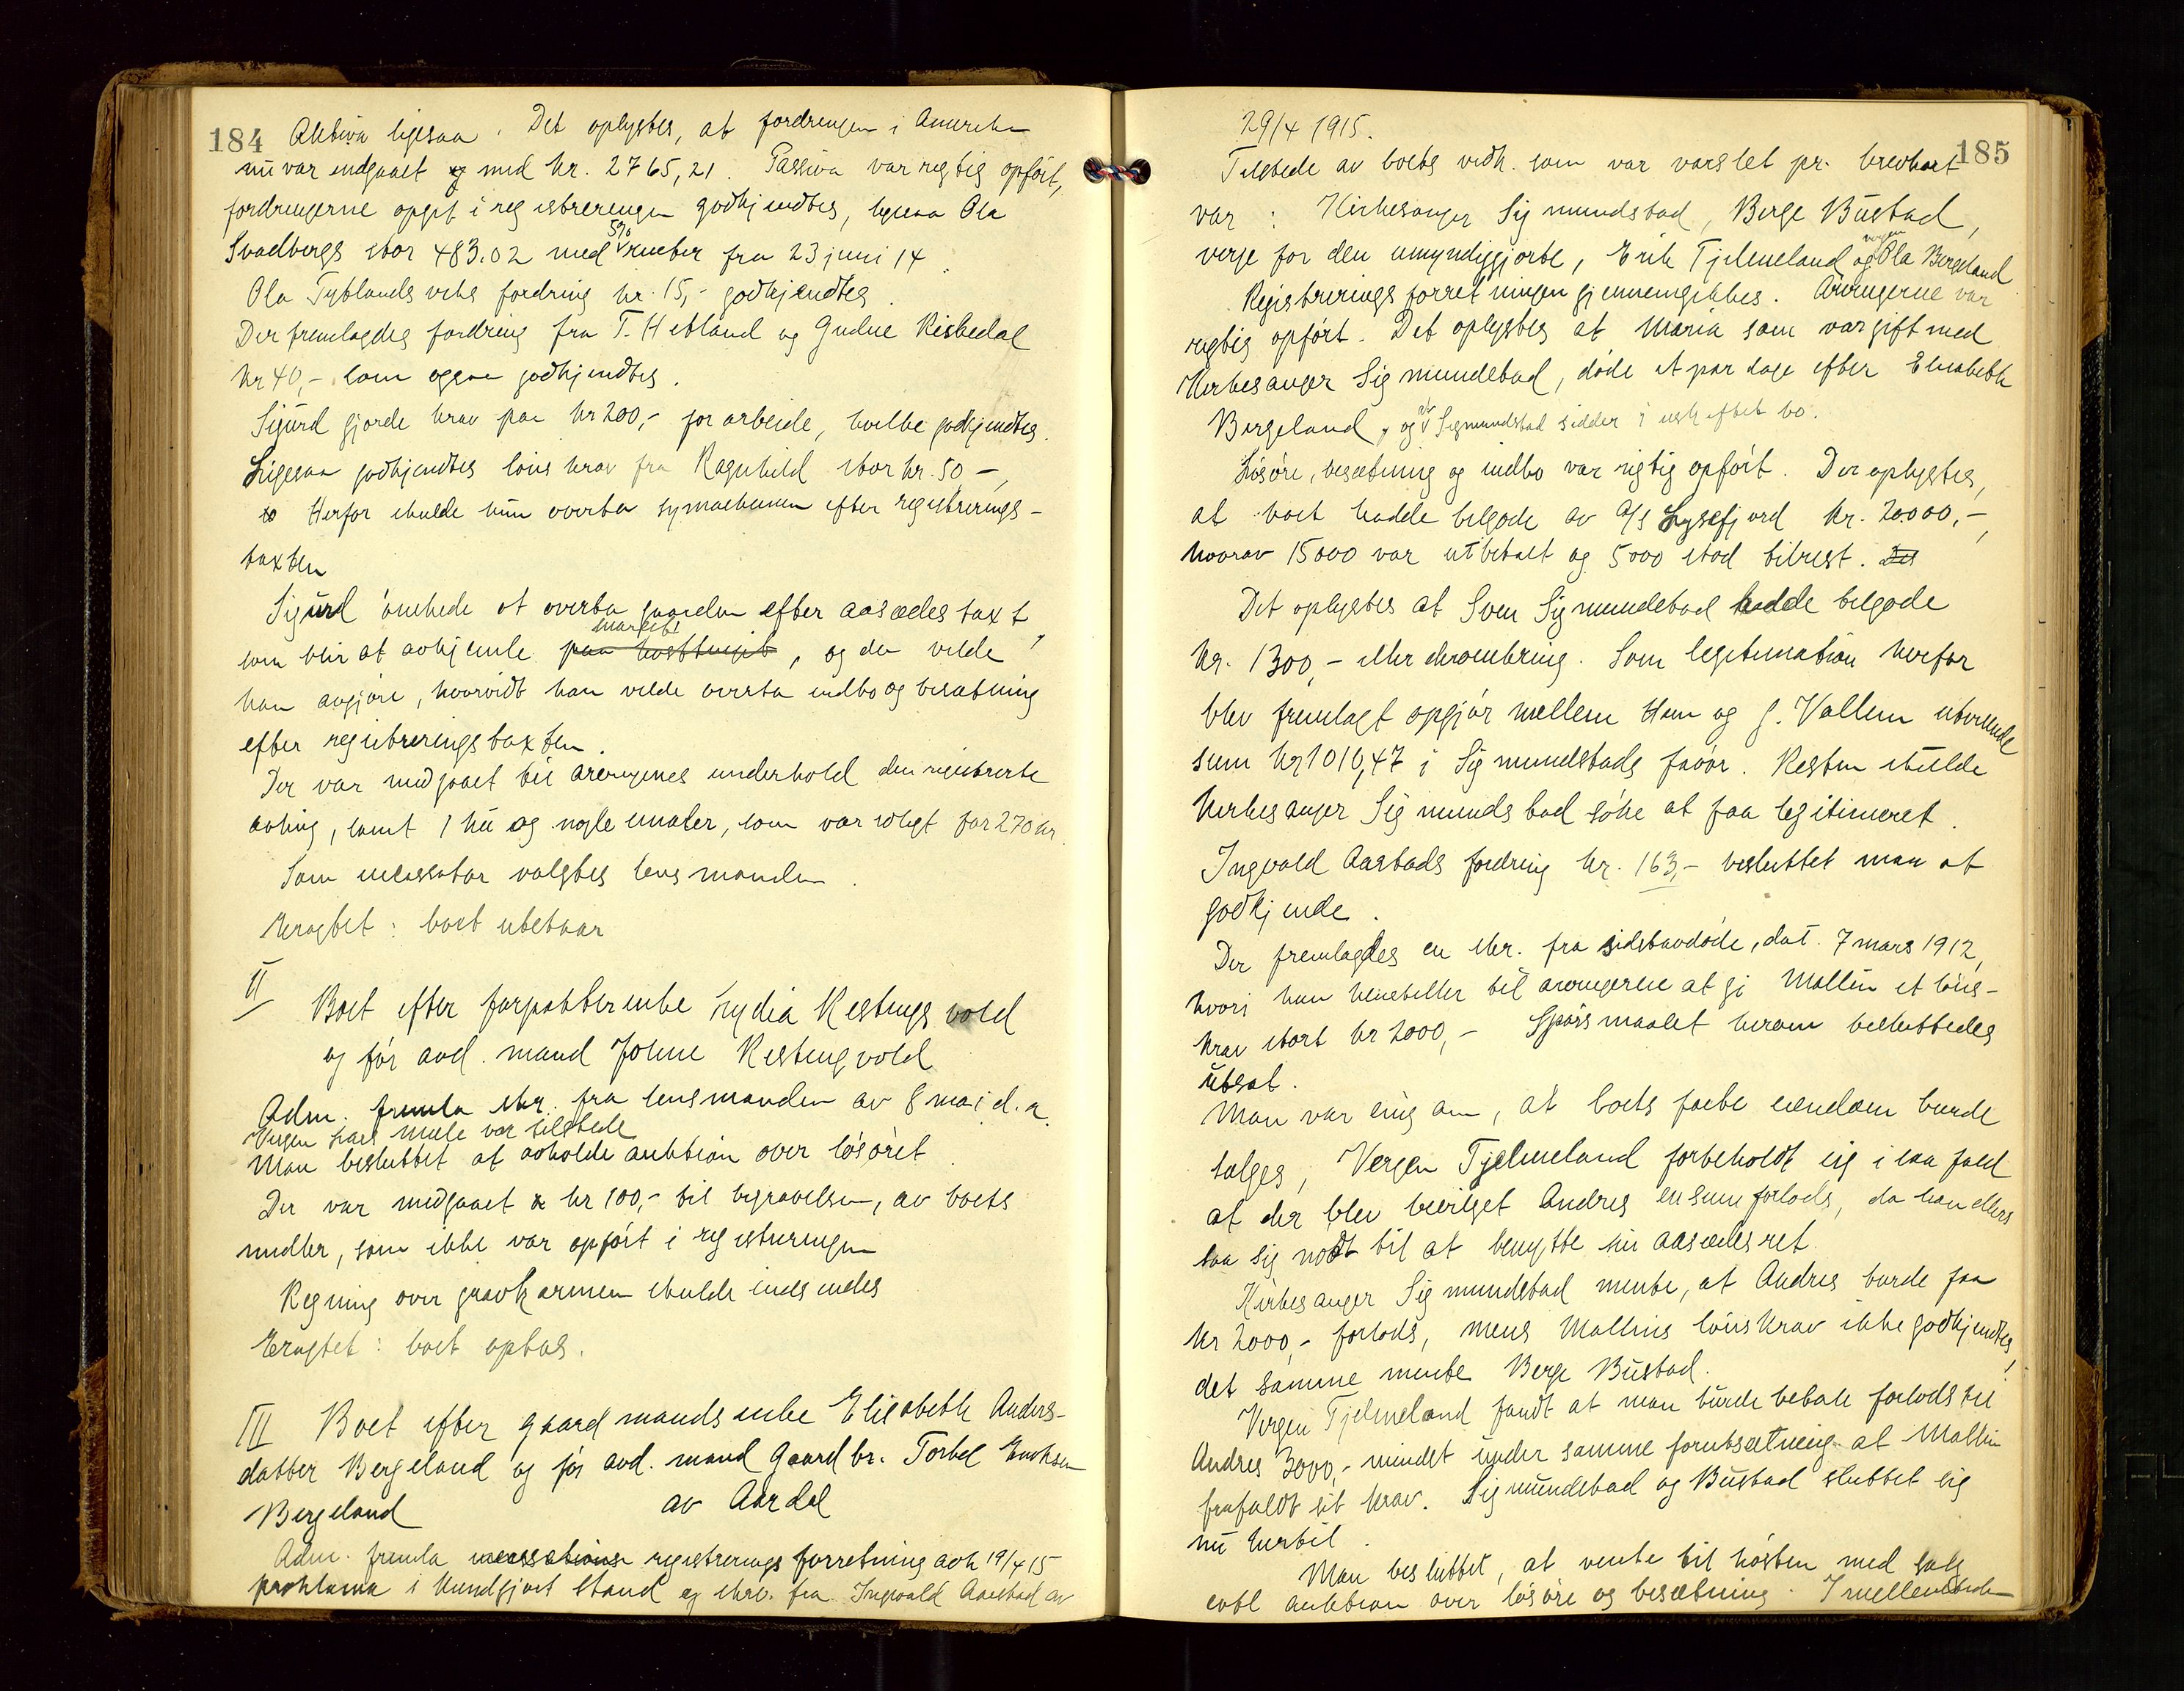 184 Aktiva ligesaa. Det oplystes, at fordringen i Amerika
nu var indgaaet med kr. 2765,21. Passiva var rigtig opført,
fordringerne opgit i registreringen godkjendtes, ligesaa Ola
Svadbergs stor 483.02 med 5% renter fra 23 juni 14.
Ola Tyblands enkes fordring kr. 15,- godkjendtes.
Der fremlagdes fordring fra T. Hetland og Gudne Riskedal
kr 40,- som ogsaa godkjendtes.
Sigurd gjorde krav paa kr 200,- for arbeide, hvilke godkjendtes.
Ligesaa godkjendtes lönskrav fra Ragnhild stor kr. 50 -,
Herfor skulde hun overta symaskinen efter registrerings-
taxten
Sigurd ønskede at overta gaarden efter aasædestaxt,
som blir at avhjemle , og da vilde
han avgjøre, hvorvidt han vilde overta indbo og besætning
efter registreringstaxten.
Der var medgaaet til arvingenes underhold den registrerte
avling, samt 1 ku og nogle smaler, som var solgt for 270 kr
Som incassator valgtes lensmanden.
Eragtet: boet utstaar
II
Boet efter forpakterenke Lydia Kestingsvold
og før avd. mand Johne Kestingvold
Adm. fremla skr. fra lensmanden av 8 mai d.a.
Vergen Lars Mæle var tilstede
Man besluttet at avholde auktion over løsøret.
Der var medgaaet kr 100,- til begravelsen, av boets
midler, som ikke var opført i registreringen
Regning over gravkarmen skulde indsendes
Eragtet: boet optas.
III Boet efter gaardmandsenke Elisabeth Anders-
datter Bergeland og før avd. mand Gaardbr. Torkel Eriksen
Bergeland av Aardal
Adm. fremla registrerings forretning avh 19/4 15
proklama i kundgjort stand og skrv. fra Ingvald Aarstad av
29/4 1915. 185
Tilstede av boets vedk. som var varslet pr. brevkort
var: Kirkesanger Sigmundstad, Berge Bustad,
verje for den umyndiggjorte, Erik Tjelmeland og vergen Ola Bergeland
Registreringsforretningen gjennemgikkes. Arvingerne var
rigtig opført. Det oplystes at Maria som var gift med
Kirkesanger Sigmundstad, døde et par dage efter Elisabeth
Bergeland, og at Sigmundstad sidder i uskiftet bo.
Løsøre, besætning og indbo var rigtig opført. Der oplystes,
at boet hadde tilgode av A/S Lysefjord kr. 20.000,-,
hvorav 15000 var utbetalt og 5000 stod tilrest. Det
Det oplystes at Sven Sigmundstad hadde tilgode
kr. 1300,- efter avregning. Som legitimation herfor
blev fremlagt opgjør mellem ham og J. Vallem utvisende
sum kr 1010,47 i Sigmundstads favør. Resten skulde
Kirkesanger Sigmundstad søke at faa legitimeret.
Ingvald Aarstads fordring kr. 163,- besluttet man at
godkjende.
Der fremlagdes en skr. fra sidstavdøde, dat. 7 mars 1912,
hvori hun henstiller til arvingerne at gi Mallin et løns-
krav stort kr 2000,- Spørsmaalet herom besluttedes
utsat.
Man var enig om, at boets faste eiendom burde
sælges, Vergen Tjelmeland forbeholdt sig i saa fald
at der blev bevilget Andres en sum forlods, da han ellers
saa sig nødt til at benytte sin aasædesret.
Kirkesanger Sigmundstad mente, at Andres burde faa
kr 2000,- forlods, mens Mallins lønskrav ikke godkjendtes,
det samme mente Berge Bustad.
Vergen Tjelmeland fandt at man burde betale forlods til
Andres 3000,- mindst under samme forutsætning at Mallin
frafaldt sit krav. Sigmundstad og Bustad sluttet sig
nu hertil.
Man besluttet, at vente til høsten med salg
evtl auktion over løsøre og besætning. I mellemtiden